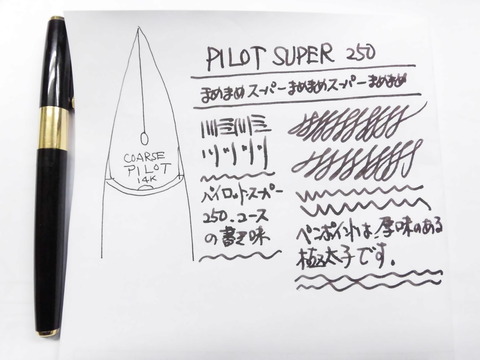 PILOT SUPER 250
まめまめスーパーまめまめスーパーまめまめ
COARSE
PILOT
14K
パイロット・スーパー
250.コース
の書き味
ペンポイントは、厚味のある
極太子です。